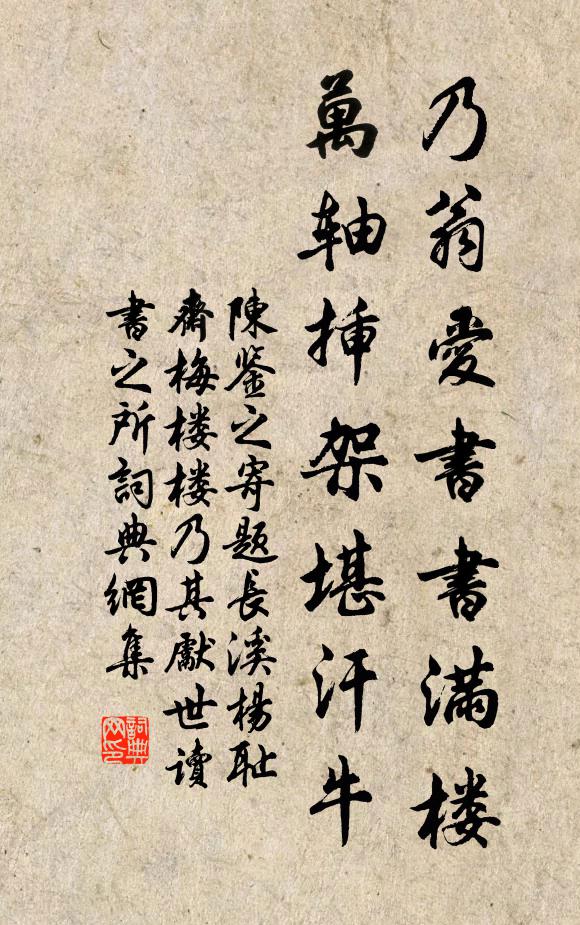 乃翁愛書書滿楼
萬軸挿架堪汗牛
陳鉴之寄题長溪楊耻
齋梅楼楼乃其獻世读
書之所詞典網集
詞典网印